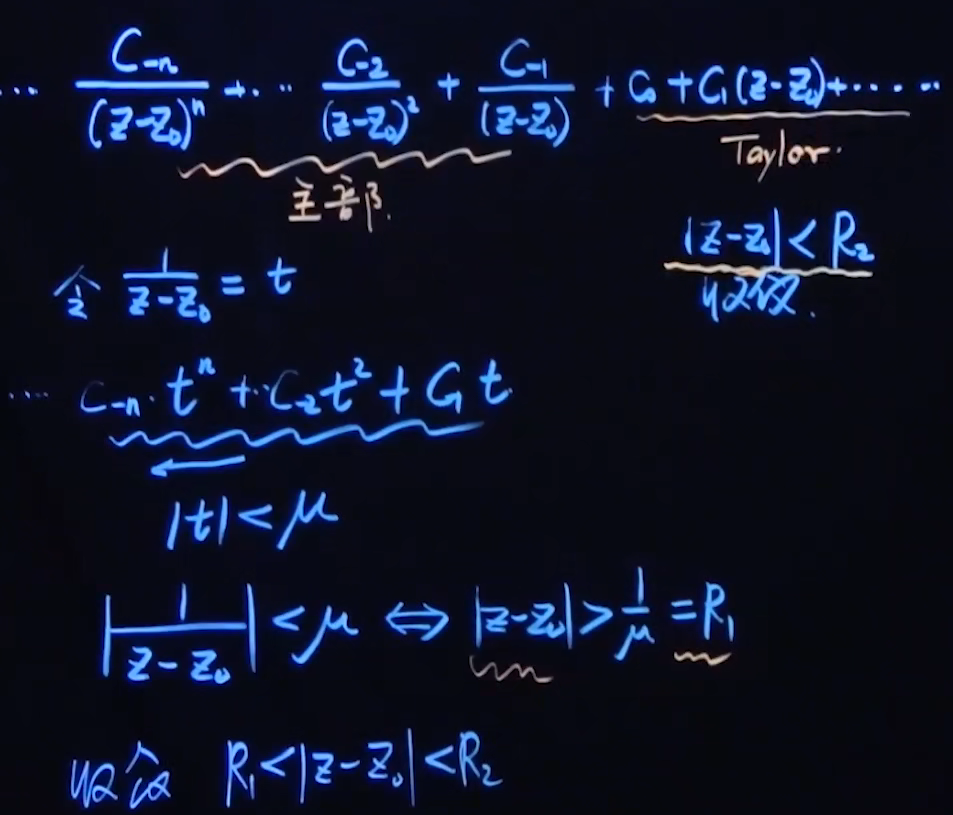 ... C₋ₙ/(z-z₀)ⁿ + ... C₋₂/(z-z₀)² + C₋₁/(z-z₀) + C₀ + C₁(z-z₀) + ......
Taylor.
主部.
|z-z₀| < R₂
收敛.
令 1/(z-z₀) = t
.... C₋ₙ · tⁿ + ·· C₋₂t² + C₋₁ t.
|t| < μ
|1/(z-z₀)| < μ ⇔ |z-z₀| > 1/μ = R₁
R₁ < |z-z₀| < R₂